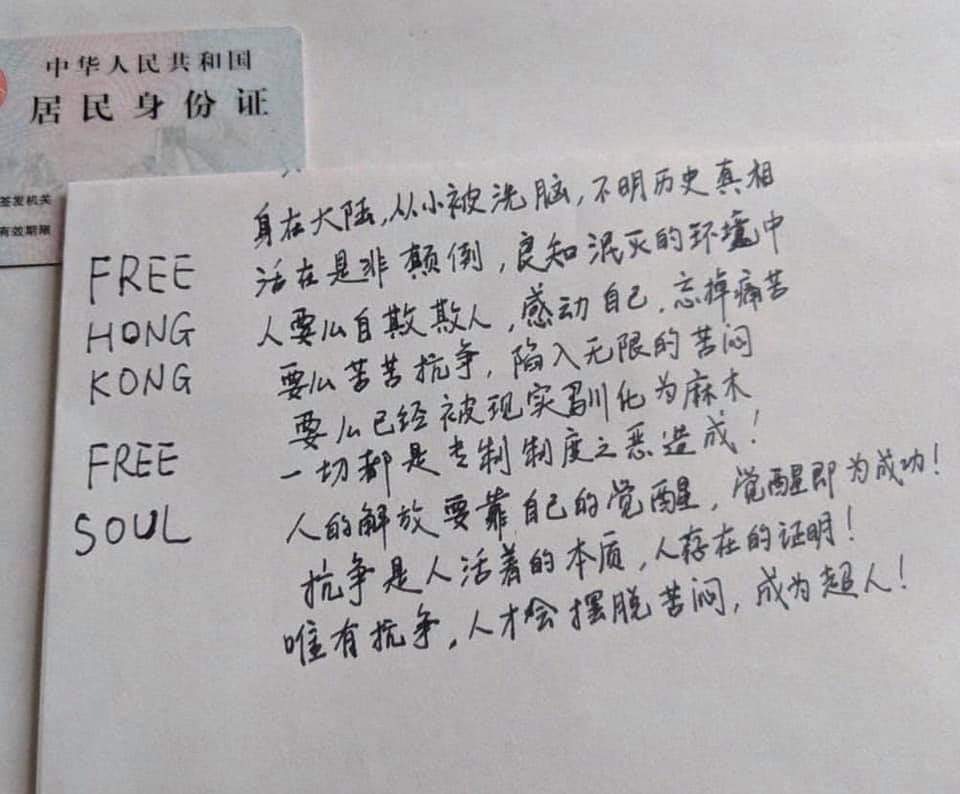 中华人民共和国
居民身份证
签发机关
有效期限
FREE
HONG
KONG
FREE
SOUL
身在大陆,从小被洗脑,不明历史真相
活在是非颠倒,良知泯灭的环境中
人要么自欺欺人,感动自己,忘掉痛苦
要么苦苦抗争,陷入无限的苦闷
要么已经被现实驯化为麻木
一切都是专制制度之恶造成!
人的解放要靠自己的觉醒,觉醒即为成功!
抗争是人活着的本质,人存在的证明!
唯有抗争,人才会摆脱苦闷,成为超人!